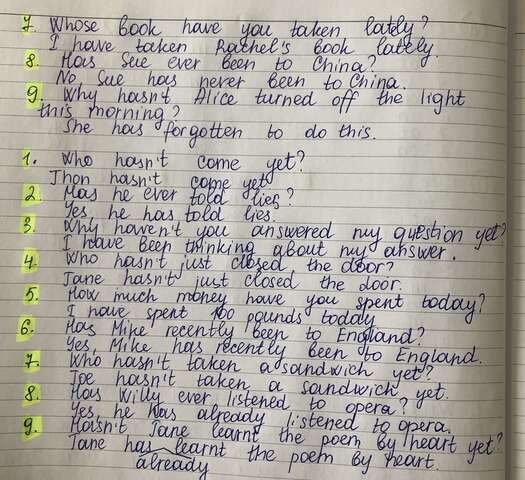 7. Whose book have you taken lately?
I have taken Rachel's book lately.
8. Has Sue ever been to China?
No, Sue has never been to China.
9. Why hasn't Alice turned off the light
this morning?
She has forgotten to do this.
1. Who hasn't come yet?
Jhon hasn't come yet
2. Has he ever told lies?
Yes, he has told lies.
3. Why haven't you answered my question yet?
I have been thinking about my answer.
4. Who hasn't just closed the door?
Jane hasn't just closed the door.
5. How much money have you spent today?
I have spent 100 pounds today
6. Has Mike recently been to England?
Yes, Mike has recently been to England.
7. Who hasn't taken a sandwich yet?
Joe hasn't taken a sandwich yet.
8. Has Willy ever listened to opera?
Yes, he has already listened to opera.
9. Hasn't Jane learnt the poem by heart yet?
Jane has learnt the poem by heart.
already